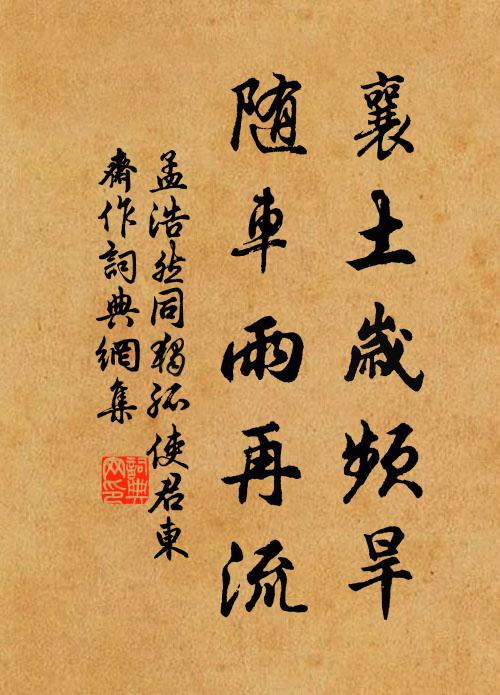 襄土歲頻旱
随車雨再流
孟浩然同獨孤使君東
齋作詞典網集
詞典网印